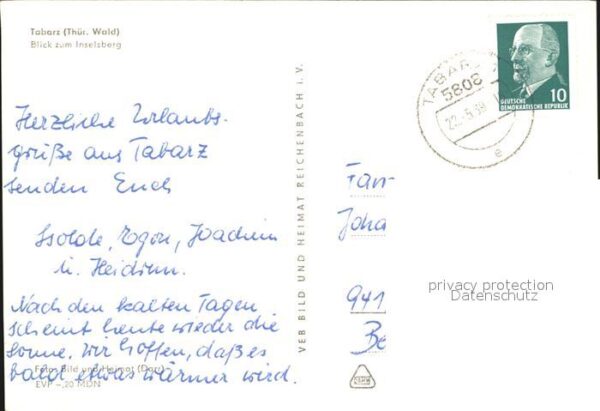 Tabarz (Thür. Wald)
Blick zum Inselsberg
Herzliche Urlaubs-
grüße aus Tabarz
senden Euch
Isolde, Egon, Joachim
u. Heidrun.
Nach den kalten Tagen
scheint heute wieder die
Sonne. Wir hoffen, daß es
bald etwas wärmer wird.
Foto: Bild und Heimat (Darr)
EVP -,20 MDN
VEB BILD UND HEIMAT REICHENBACH i. V.
TABARZ
5808
e
10
DEUTSCHE
DEMOKRATISCHE REPUBLIK
Fam
Joha
941
Be
privacy protection
Datenschutz